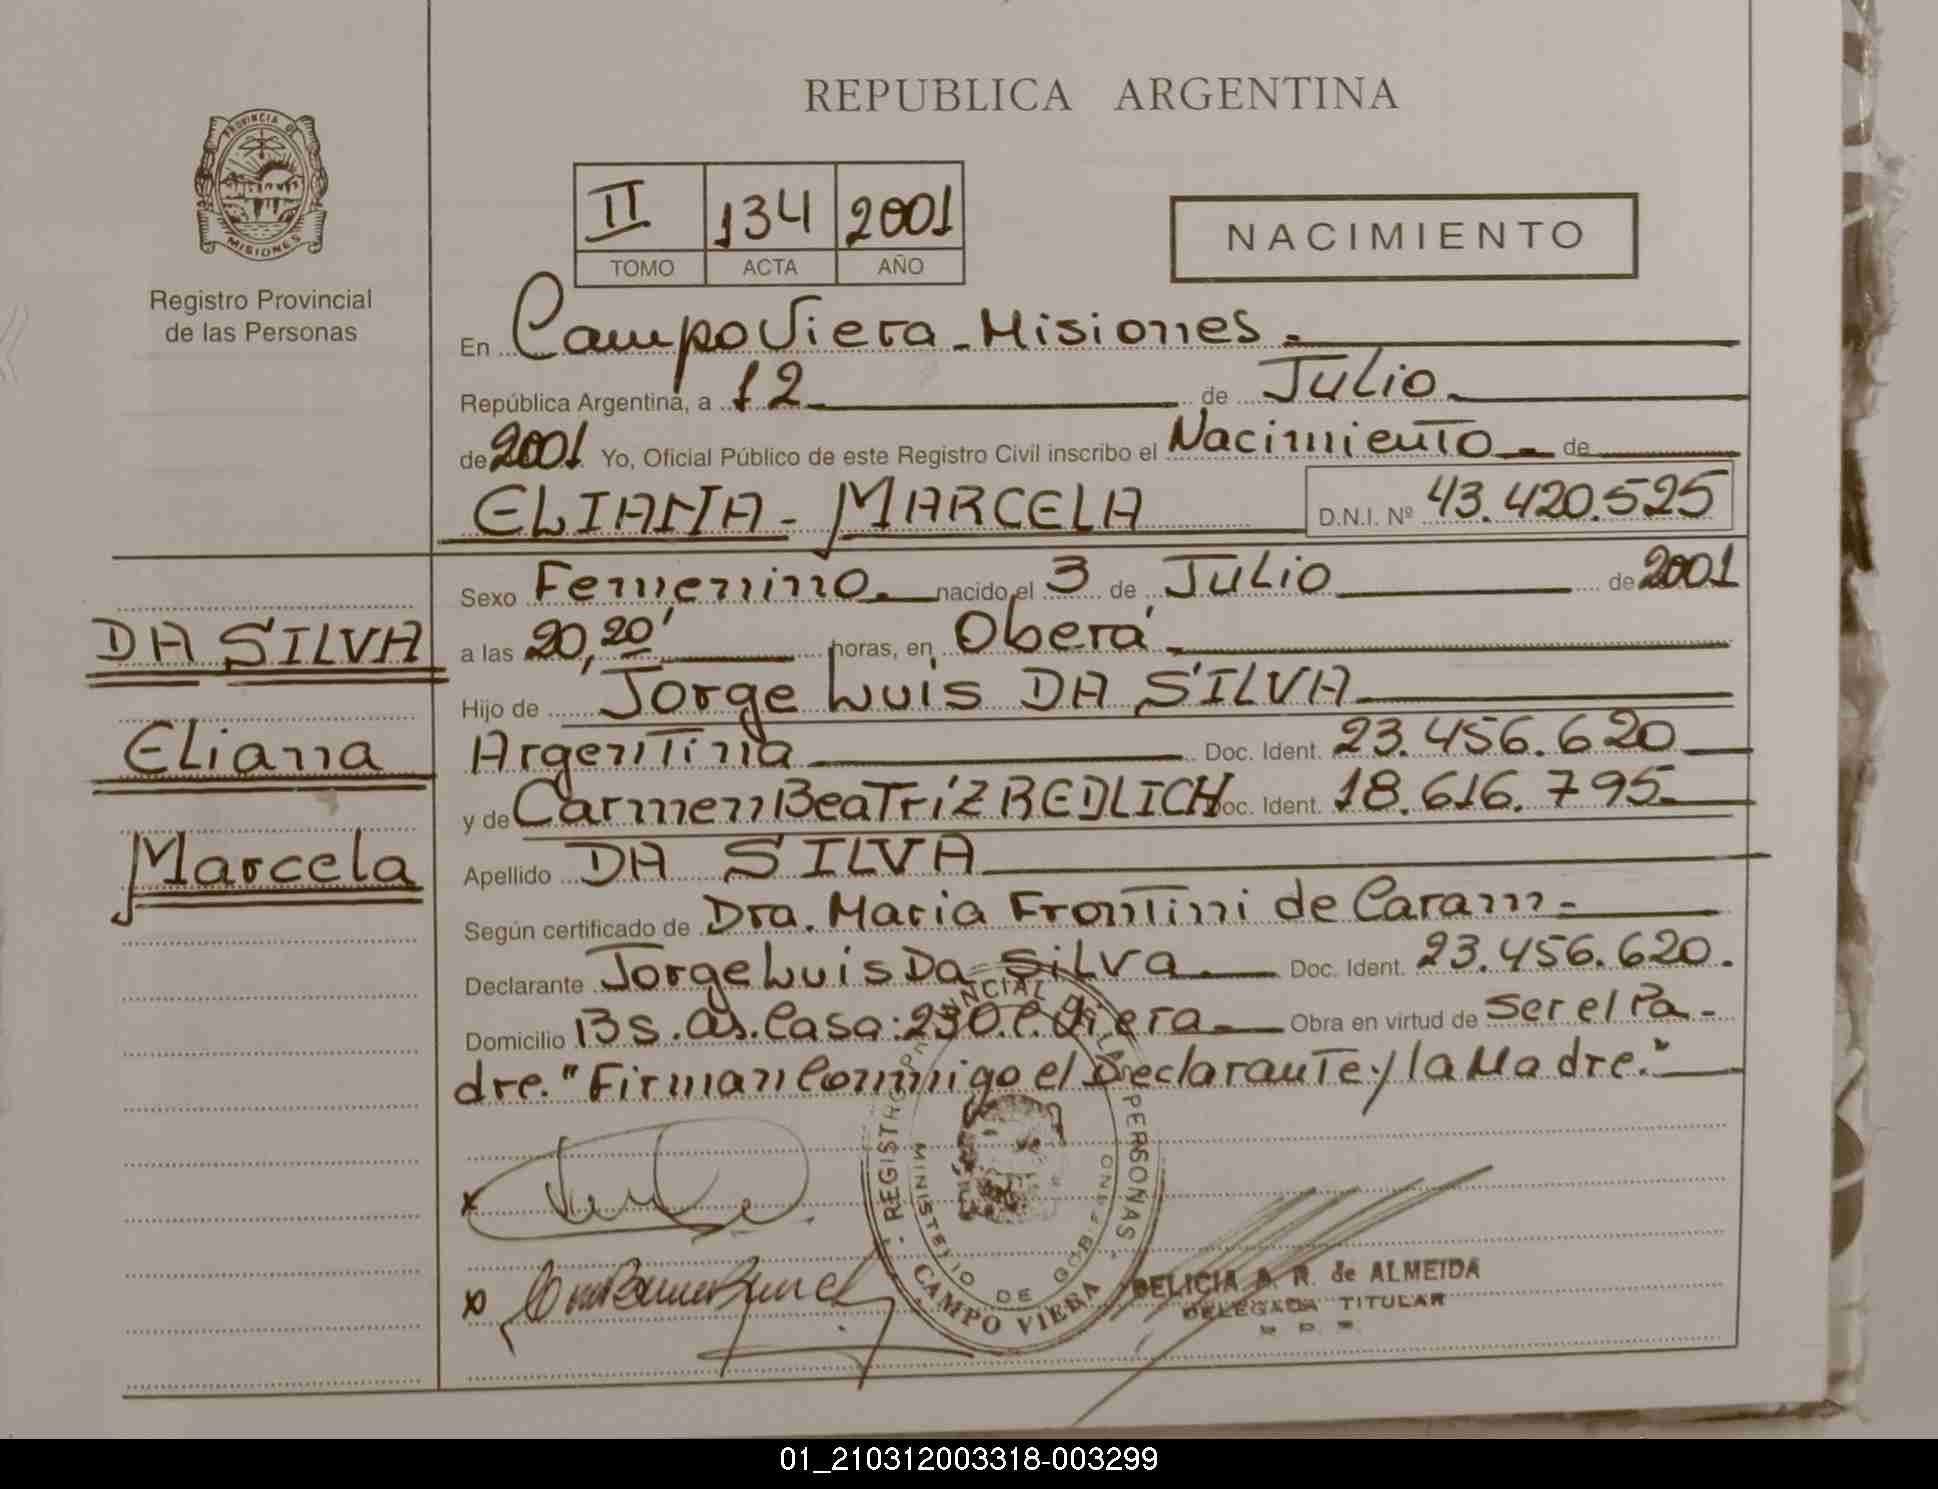 REPUBLICA ARGENTINA
PROVINCIA DE
MISIONES
Registro Provincial
de las Personas
II 134 2001
TOMO ACTA AÑO
NACIMIENTO
En Campo Viera - Misiones.
República Argentina, a 12 de Julio
de 2001 Yo, Oficial Público de este Registro Civil inscribo el Nacimiento de
ELIANA - MARCELA D.N.I. Nº 43.420.525
DA SILVA
Eliana
Marcela
Sexo Femenino. nacido el 3 de Julio de 2001
a las 20,20' horas, en Oberá
Hijo de Jorge Luis DA SILVA
Argentina Doc. Ident. 23.456.620
y de Carmen Beatríz REDLICH Doc. Ident. 18.616.795
Apellido DA SILVA
Según certificado de Dra. Maria Frontini de Caram -
Declarante Jorge Luis Da Silva Doc. Ident. 23.456.620.
Domicilio Bs. As. Casa: 230. C. Viera Obra en virtud de ser el Pa-
dre. "Firman Conmigo el Declarante y la Madre."
REGISTRO PROVINCIAL DE LAS PERSONAS
MINISTERIO DE GOBIERNO
CAMPO VIERA
DELICIA A. R. de ALMEIDA
DELEGADA TITULAR
01_210312003318-003299